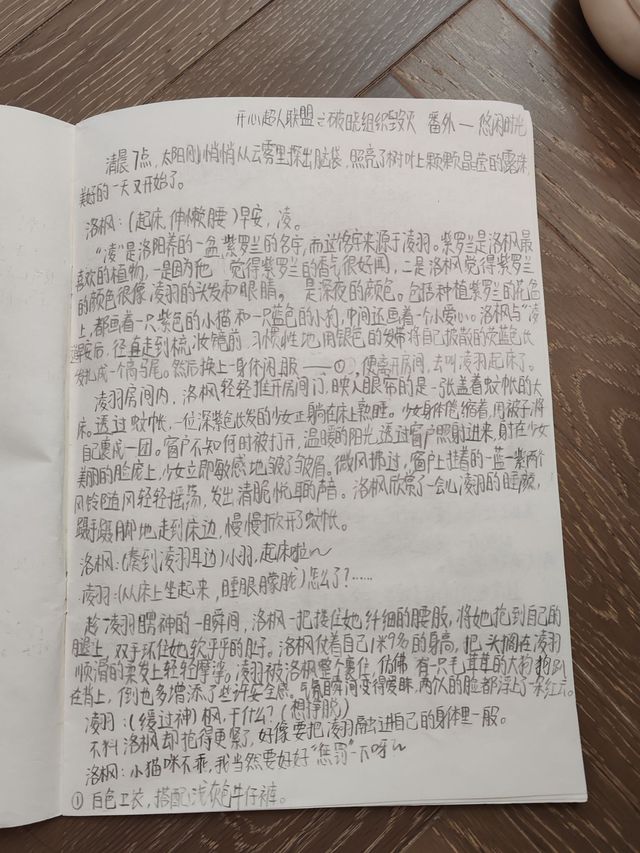 开心超人联盟之破晓组织毁灭 番外一 悠闲时光
清晨7点，太阳刚悄悄从云雾里探出脑袋，照亮了树叶上颗颗晶莹的露珠，
美好的一天又开始了。
洛枫：（起床，伸懒腰）早安，凌。
“凌”是洛阳养的一盆紫罗兰的名字，而这名字来源于凌羽。紫罗兰是洛枫最
喜欢的植物，一是因为他 觉得紫罗兰的香气很好闻，二是洛枫觉得紫罗兰
的颜色很像凌羽的头发和眼睛， 是深夜的颜色。包括种植紫罗兰的花盆
上，都画着一只紫色的小猫和一只蓝色的小狗，中间还画着一个小爱心。洛枫与“凌
道早安后，径直走到梳妆镜前，习惯性地用银色的发带将自己披散的荧蓝色长
发扎成一个高马尾。然后换上一身休闲服——①，便离开房间，去叫凌羽起床了。
凌羽房间内，洛枫轻轻推开房间门，映入眼帘的是一张盖着蚊帐的大
床。透过蚊帐，一位深紫色长发的少女正躺在床上熟睡。少女身体蜷缩着，用被子将
自己裹成一团。窗户不知何时被打开，温暖的阳光透过窗户照射进来，射在少女
美丽的脸庞上，少女立即敏感地皱了皱眉。微风拂过，窗户上挂着的一蓝一紫两个
风铃随风轻轻摇荡，发出清脆悦耳的声音。洛枫欣赏了一会儿凌羽的睡颜，
蹑手蹑脚地走到床边，慢慢掀开了蚊帐。
洛枫：（凑到凌羽耳边）小羽，起床啦～
凌羽：（从床上坐起来，睡眼朦胧）怎么了？……
趁凌羽愣神的一瞬间，洛枫一把搂住她纤细的腰肢，将她抱到自己的
腿上，双手环住她软乎乎的肚子。洛枫仗着自己1米9多的身高，把头搁在凌羽
顺滑的柔发上轻轻摩挲。凌羽被洛枫整个裹住，仿佛有一只毛茸茸的大狗抱趴
在背上，倒也多增添了些许安全感。气氛瞬间变得暧昧，两人的脸都浮上了一朵红云。
凌羽：（缓过神）枫，干什么？（想挣脱）
不料洛枫却抱得更紧了，好像要把凌羽融进自己的身体里一般。
洛枫：小猫咪不乖，我当然要好好“惩罚”一下呀～
① 白色上衣，搭配浅灰色牛仔裤。